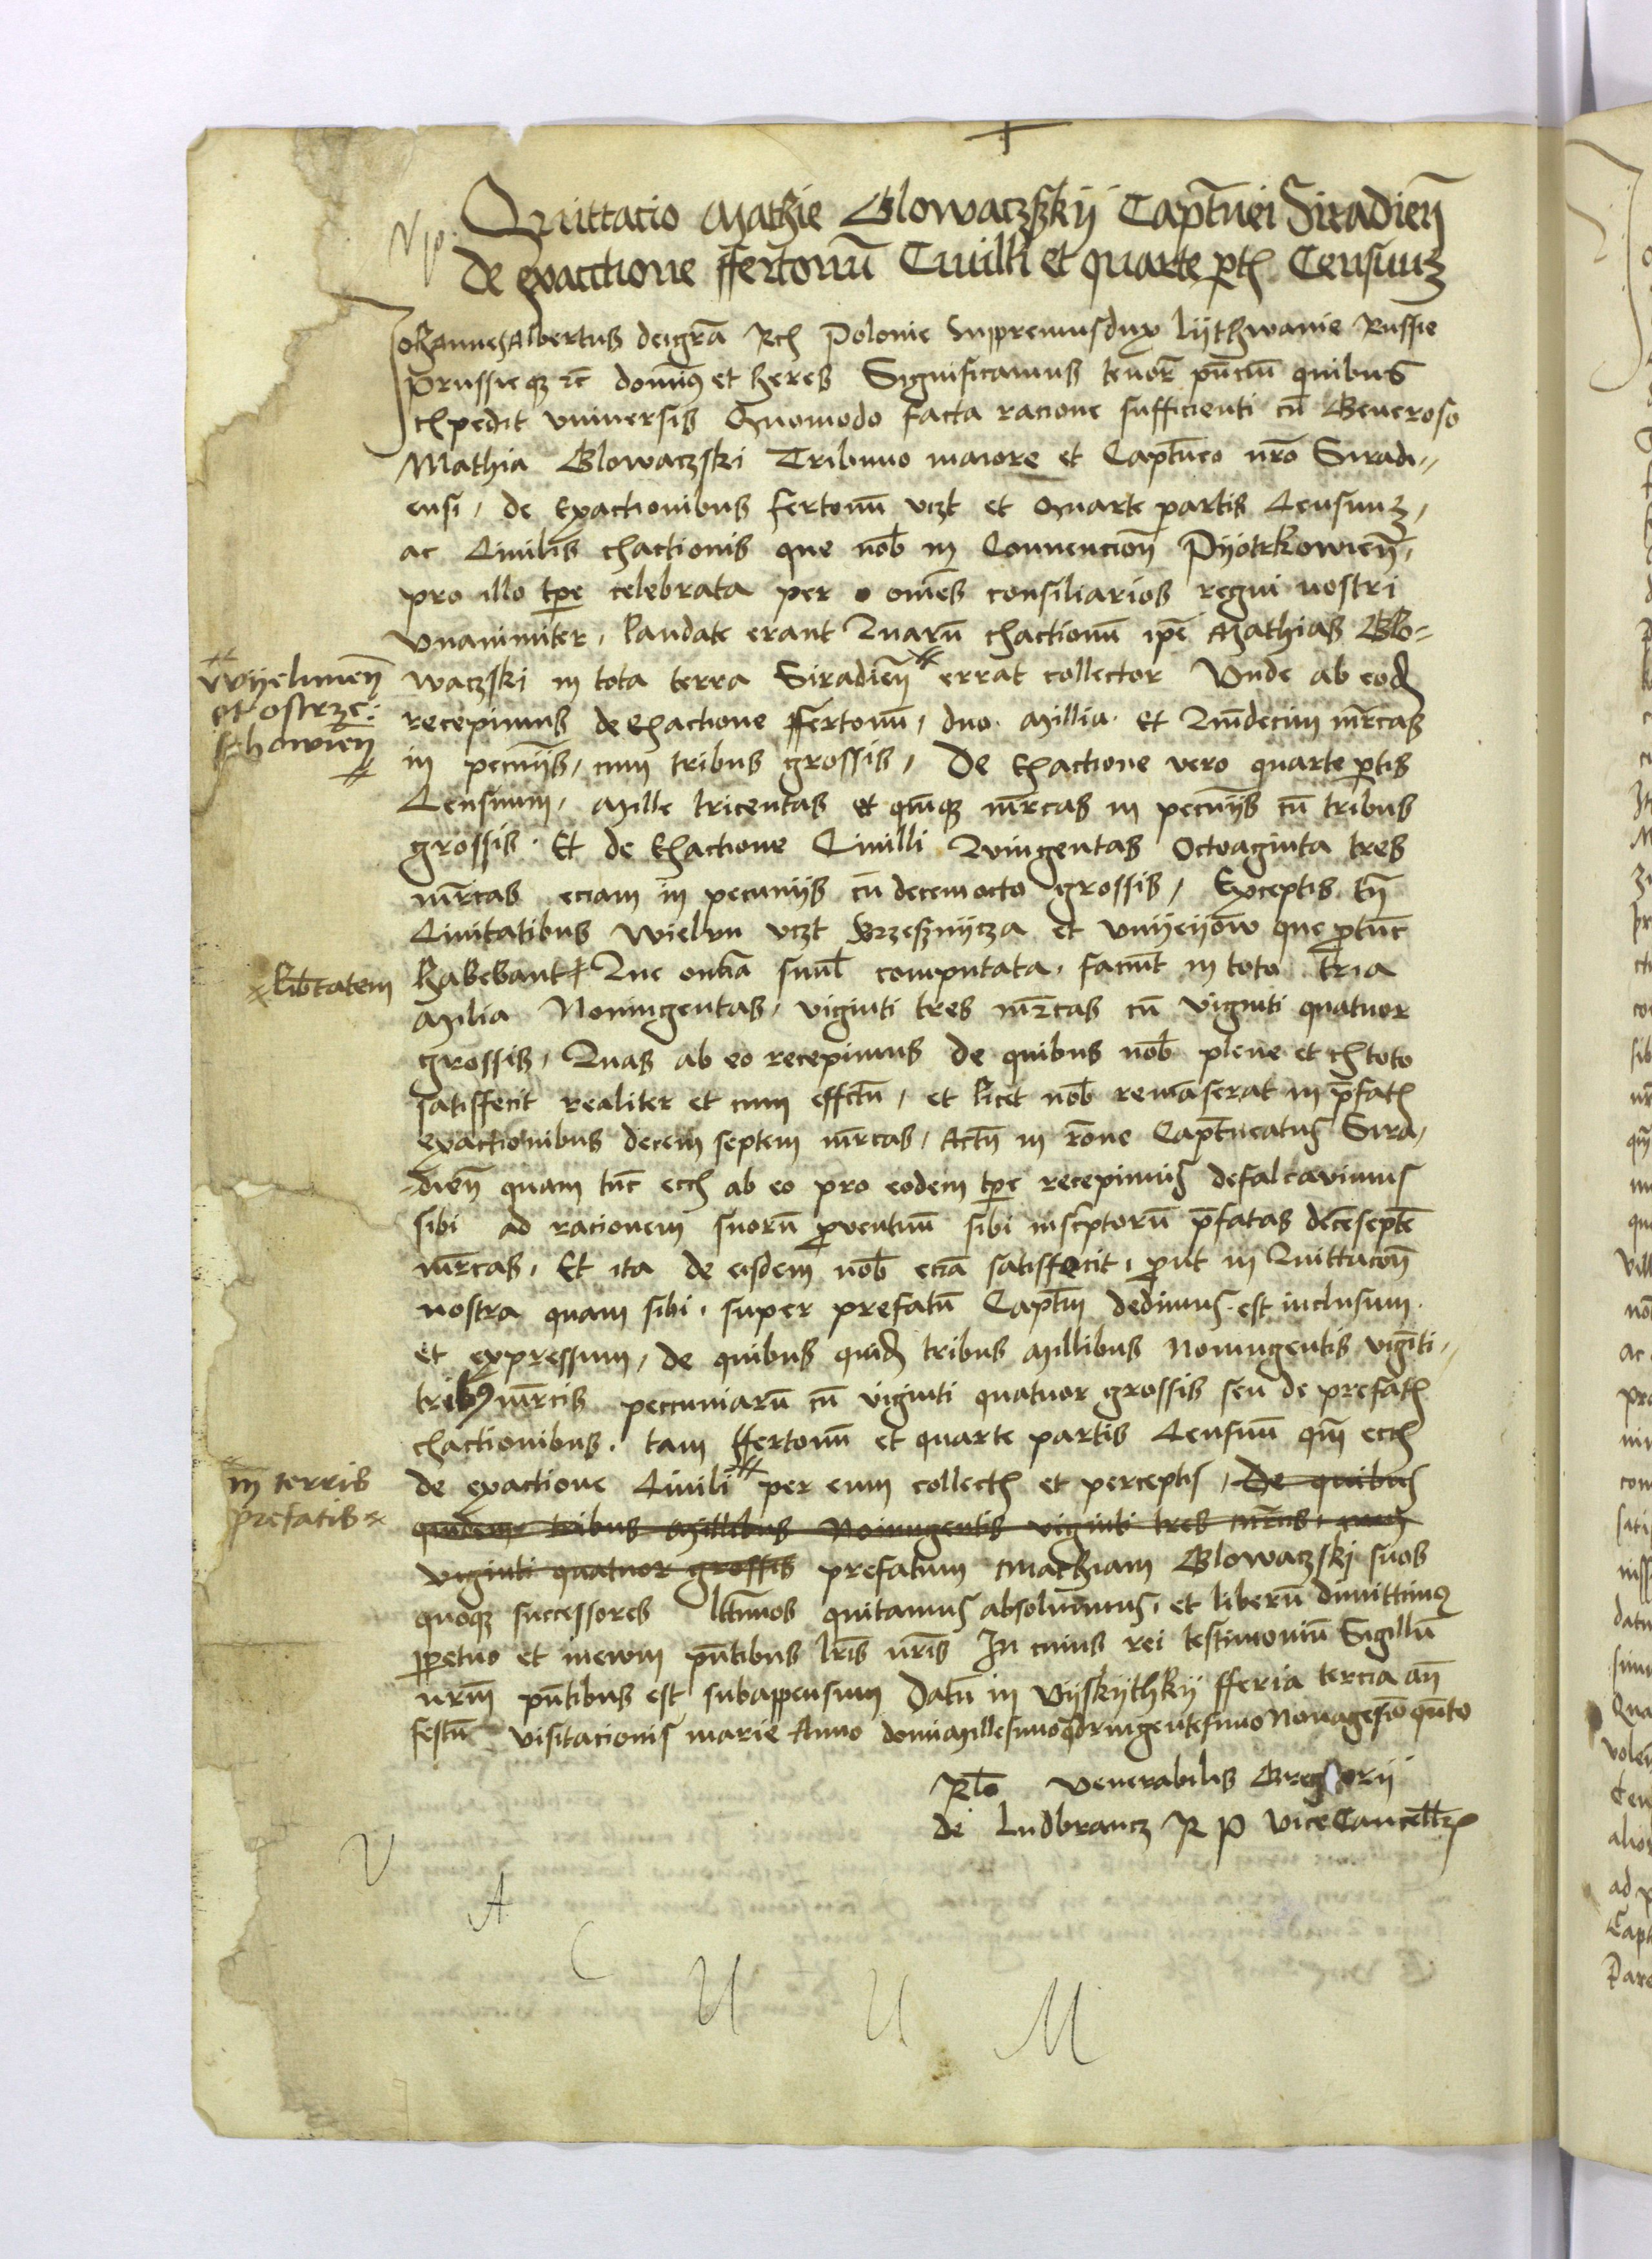 Quittacio Mathie Glowaczszkij Captn̄ei Siradien̄
de exacctione ffertonū Civilli et quarte ptʒ Censuuʒ
Johannes Albertus deigrā Rex Polonie Suppremusdux Lijthwanie Russie
Prussieqʒ zc̄ domin⁹ et heres Significamus tenor̄ pn̄ciū quibus
expedit vniversis Quomodo facta racione sufficienti cū Generoso
Mathia Glowaczski Tribuno maiore et Captn̄eo nrō Siradi„
ensi, de Exactionibus fertonū vczt et Quarte partis Censuuʒ,
ac Civilis exactionis que nob̄ in Convencion̄ Pijotrkowien̄,
pro illo tp̄e celebrata per om̄es consiliarios regni nostri
vnanimiter, laudate erant Quarū exactionū ip̄e Mathias Glo=
waczski in tota terra Siradien̄ errat collector Vnde ab eod
wijelunen̄
et ostrze:
schowien̄
recepimus de exactione ffertonū, duo Millia et Quīdecim mr̄cas
in pecunijs, cum tribus grossis, De Exactione vero quarte ptis
Censuum, Mille tricentas et quīqʒ mr̄cas in pecunijs cū tribus
grossis. Et de Exactione Civilli Quingentas Octoaginta tres
mr̄cas eciam in pecunijs cū decemocto grossis, Exceptis tn̄
Civitatibus Wielun vczt Brzesznijcza et Vnijeijow que ptunc
libtatem
habebant Que om̄ia simul computata, faciūt in toto tria
Milia Noningentas, viginti tres mr̄cas cū viginti quatuor
grossis, Quas ab eo recepimus de quibus nob̄ plene et ex toto
satisffecit realiter et cum effctū, et licet nob̄ remāserat in p̄fatʒ
exactionibus decem septem mr̄cas, Actn̄ in rōne Captn̄eatus Sira„
„dien̄ quam tūc ecʒ ab eo pro eodem tp̄e recepimus defalcavimus
sibi ad racionem suorū pventuū sibi inscptorū p̄fatas decēseptē
mr̄cas, Et ita de eisdem nob̄ eciā satisffecit, put in Quittacōn̄
nostra quam sibi, super prefatū Captm̄ dedimus est inclusum
et expressum, de quibus quid tribus Millibus Noningentis vigīti„
trib⁹ mr̄cis peccuniarū cū viginti quatuor grossis seu de prefatʒ
exactionibus, tam ffertonū et quarte partis Censuū qm̄ ecʒ
in terris
prefatis
de exactione Civili per eum collectʒ et perceptis, De quibus
quidem tribus Millibus Noningentis viginti tres mr̄cis, cum
viginti quatuor grossis prefatum Mathiam Glowaczski suos
quoqʒ successores lttīmos quitamus absolvimus, et liberū dimittim⁹
ppetuo et inewm pn̄tibus lr̄is nr̄is In cuius rei testimoniū Sigillū
nrm̄ pn̄tibus est subappensum Datū in Vijskijthkij fferia tercia an̄
festū visitacionis marie Anno domīMillesimoqdringentesimo Nonagesīo qūto
Rlō Venerabilis Gregorii
de Ludbrancz R P ViceCancellrʒ
V A C U U M